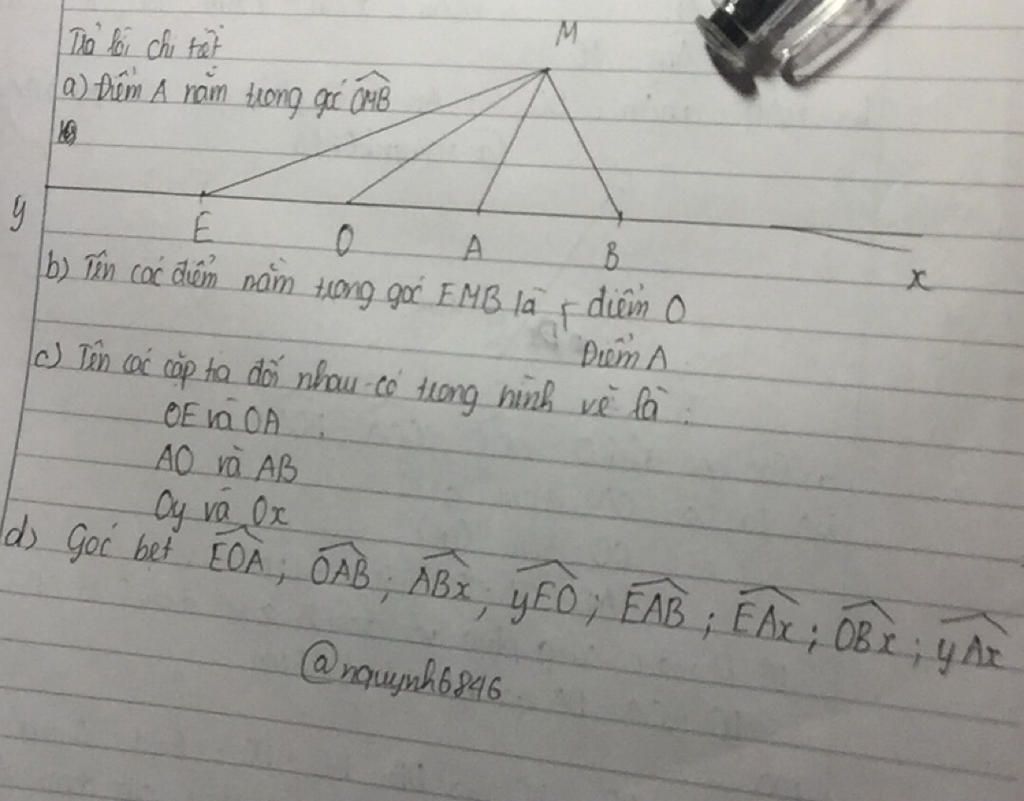 Trả lời chi tiết
a) Điểm A nằm trong góc OMB
M
y E O A B x
b) Tên các điểm nằm trong góc EMB là { điểm O
Điểm A
c) Tên các cặp tia đối nhau có trong hình vẽ là :
OE và OA
AO và AB
Oy và Ox
d) Góc bẹt EOA ; OAB ; ABx ; yEO ; EAB ; EAx ; OBx ; yAx
@nquynh6846